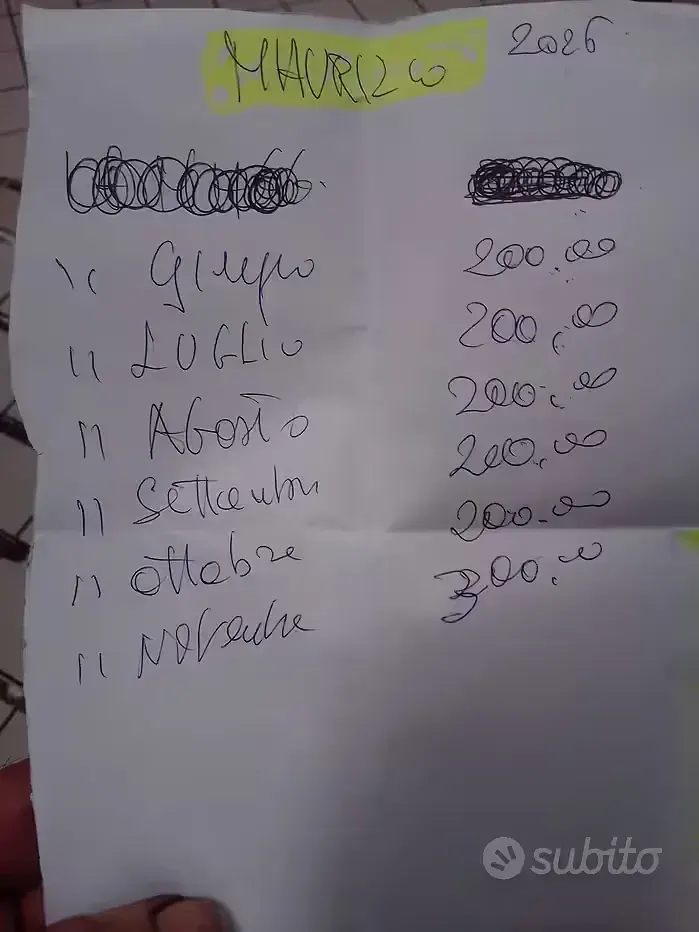 MAURIZIO 2026
" Giugno 200,00
" LUGLIO 200,00
" Agosto 200,00
" Settembre 200,00
" ottobre 200,00
" Novembre 300,00
subito